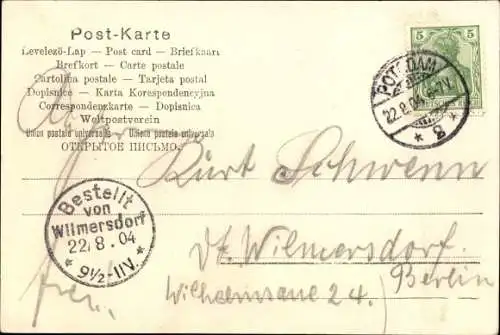 Post-Karte
Levelező-Lap — Post card — Briefkaart
Brefkort — Carte postale
Cartolina postale — Tarjeta postal
Dopisnice — Karta Korespondencyjna
Correspondenzkarte — Dopisnica
Weltpostverein
Union postale universelle — Unione postale universale
ОТКРЫТОЕ ПИСЬМО.
5 5
DEUTSCHES REICH
POTSDAM
22.8.04. 6-7V.
* 2 *
Kurt Schwenn
Bestellt
von
Wilmersdorf
22.8.04
* 9½-11V. *
Dt. Wilmersdorf.
Berlin
Wilhelmsaue 24.)
frei.